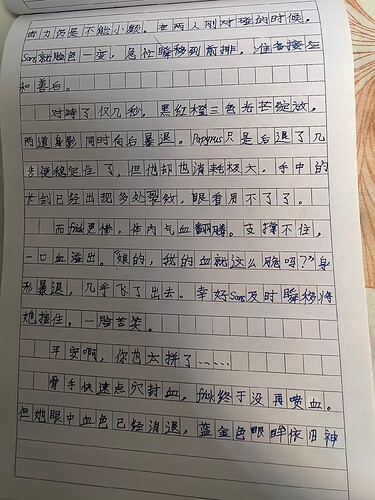 出力仍是不能小觑。在两人刚对碰的时候，
Sans就脸色一变，急忙瞬移到前排，准备接生
和善后。
对峙了仅几秒，黑红橙三色光芒绽放，
两道身影同时向后暴退。Papyrus只是后退了几
步便稳定住了，但他却也消耗极大，手中的
骨剑已经出现多处裂纹，眼看用不了了。
而frisk更惨，体内气血翻腾。支撑不住，
一口血溢出。“娘的，我的血就这么脆吗？”身
形暴退，几乎飞了出去。幸好Sans及时瞬移将
她接住，一脸苦笑。
平安啊，你也太拼了……
骨手快速点穴封血，frisk终于没再喷血。
但她眼中血色已经消退，蓝金色眼眸依旧神